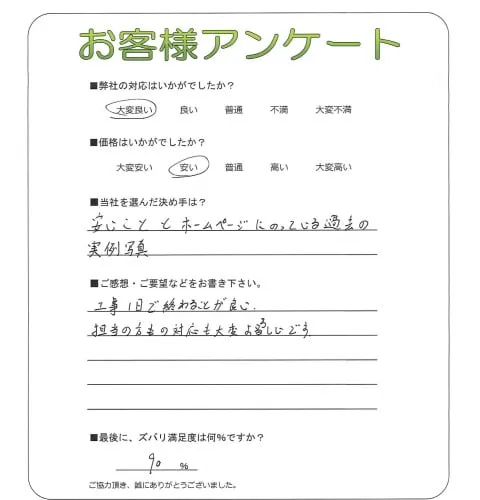 お客様アンケート
■弊社の対応はいかがでしたか？
大変良い 良い 普通 不満 大変不満
■価格はいかがでしたか？
大変安い 安い 普通 高い 大変高い
■当社を選んだ決め手は？
安いこと と ホームページにのっている過去の
実例写真
■ご感想・ご要望などをお書き下さい。
工事1日で終わることが良い.
担当の方の対応も大変よろしいです
■最後に、ズバリ満足度は何%ですか？
90 %
ご協力頂き、誠にありがとうございました。